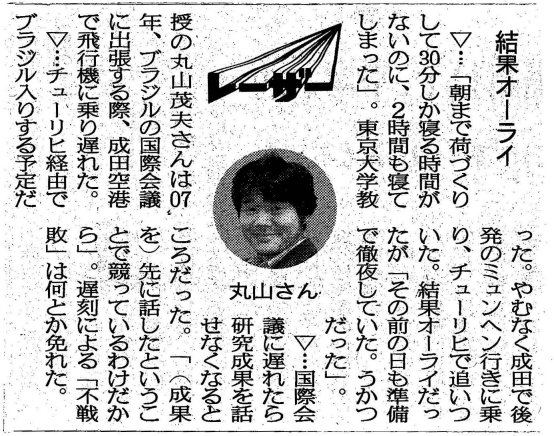 結果オーライ
▽…「朝まで荷づくり
して30分しか寝る時間が
ないのに、2時間も寝て
しまった」。東京大学教
レーザー
授の丸山茂夫さんは07
年、ブラジルの国際会議
に出張する際、成田空港
で飛行機に乗り遅れた。
▽…チューリヒ経由で
ブラジル入りする予定だ
った。やむなく成田で後
発のミュンヘン行きに乗
り、チューリヒで追いつ
いた。結果オーライだっ
たが「その前の日も準備
で徹夜していた。うかつ
だった」。
▽…国際会
議に遅れたら
研究成果を話
せなくなると
ころだった。「(成果
を)先に話したというこ
とで競っているわけだか
ら」。遅刻による「不戦
敗」は何とか免れた。
丸山さん